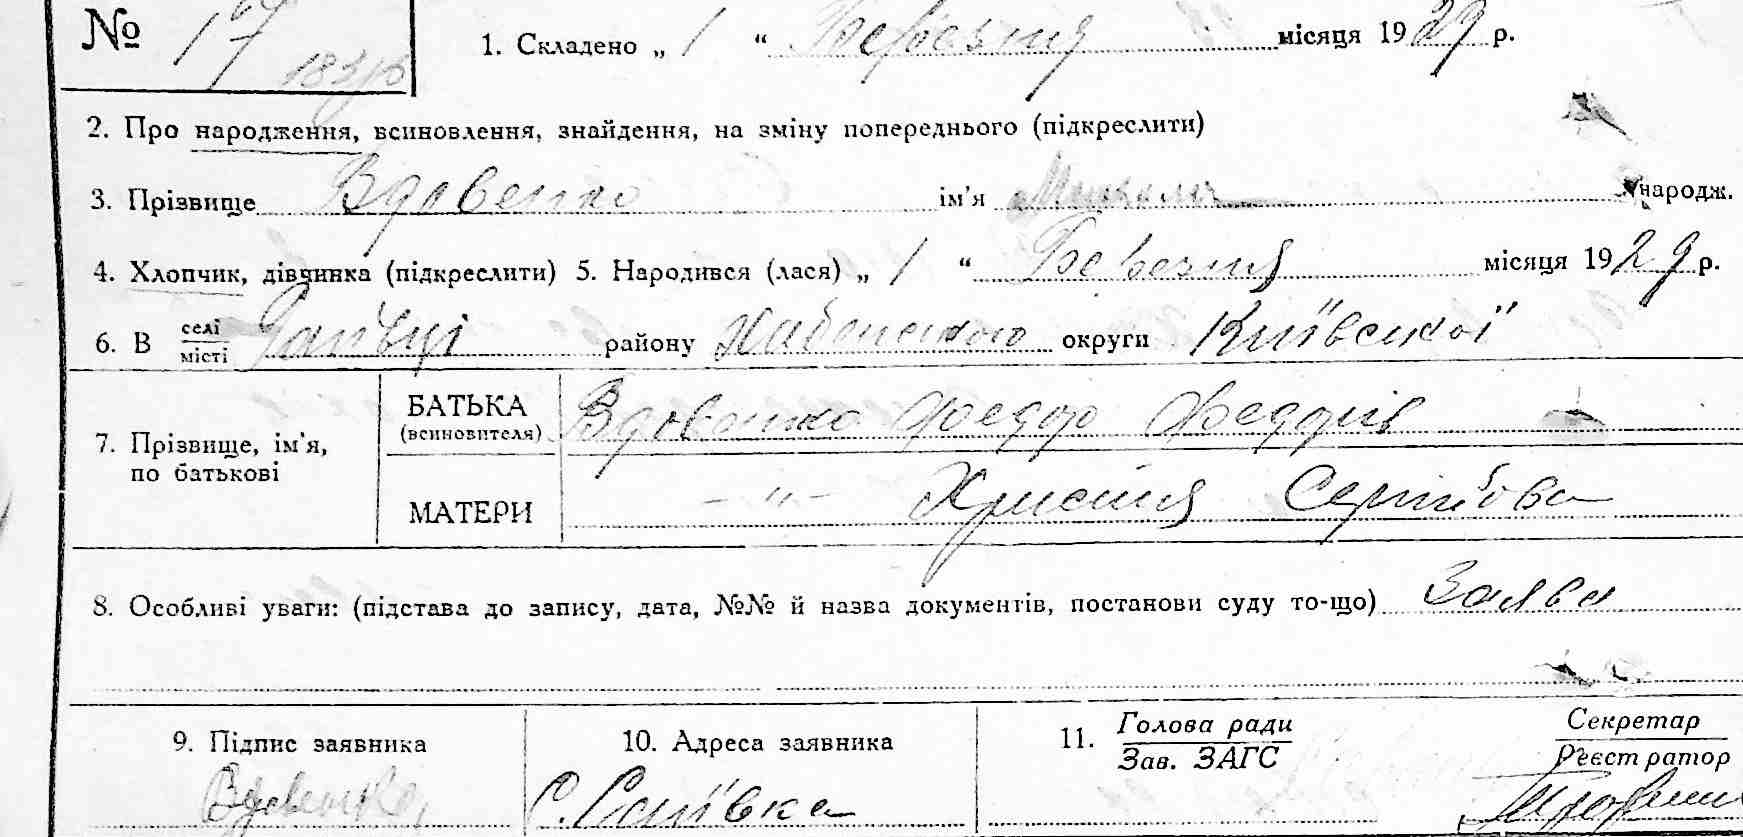 № 17 1. Складено „ 1 “ Березня місяця 1929 р.
2. Про народження, всиновлення, знайдення, на зміну попереднього (підкреслити)
3. Прізвище Вдовенко ім’я Микола народж.
4. Хлопчик, дівчинка (підкреслити) 5. Народився (лася) „ 1 “ Березня місяця 1929 р.
6. В селі місті району Хабенського округи Київської
7. Прізвище, ім’я, по батькові
БАТЬКА (всиновителя) Вдовенко Федор Федорів
МАТЕРИ –"– Христя Сергійова
8. Особливі уваги: (підстава до запису, дата, №№ й назва документів, постанови суду то-що) Заява
9. Підпис заявника 10. Адреса заявника 11. Голова ради Секретар
Зав. ЗАГС Реєстратор
Вдовенко С.